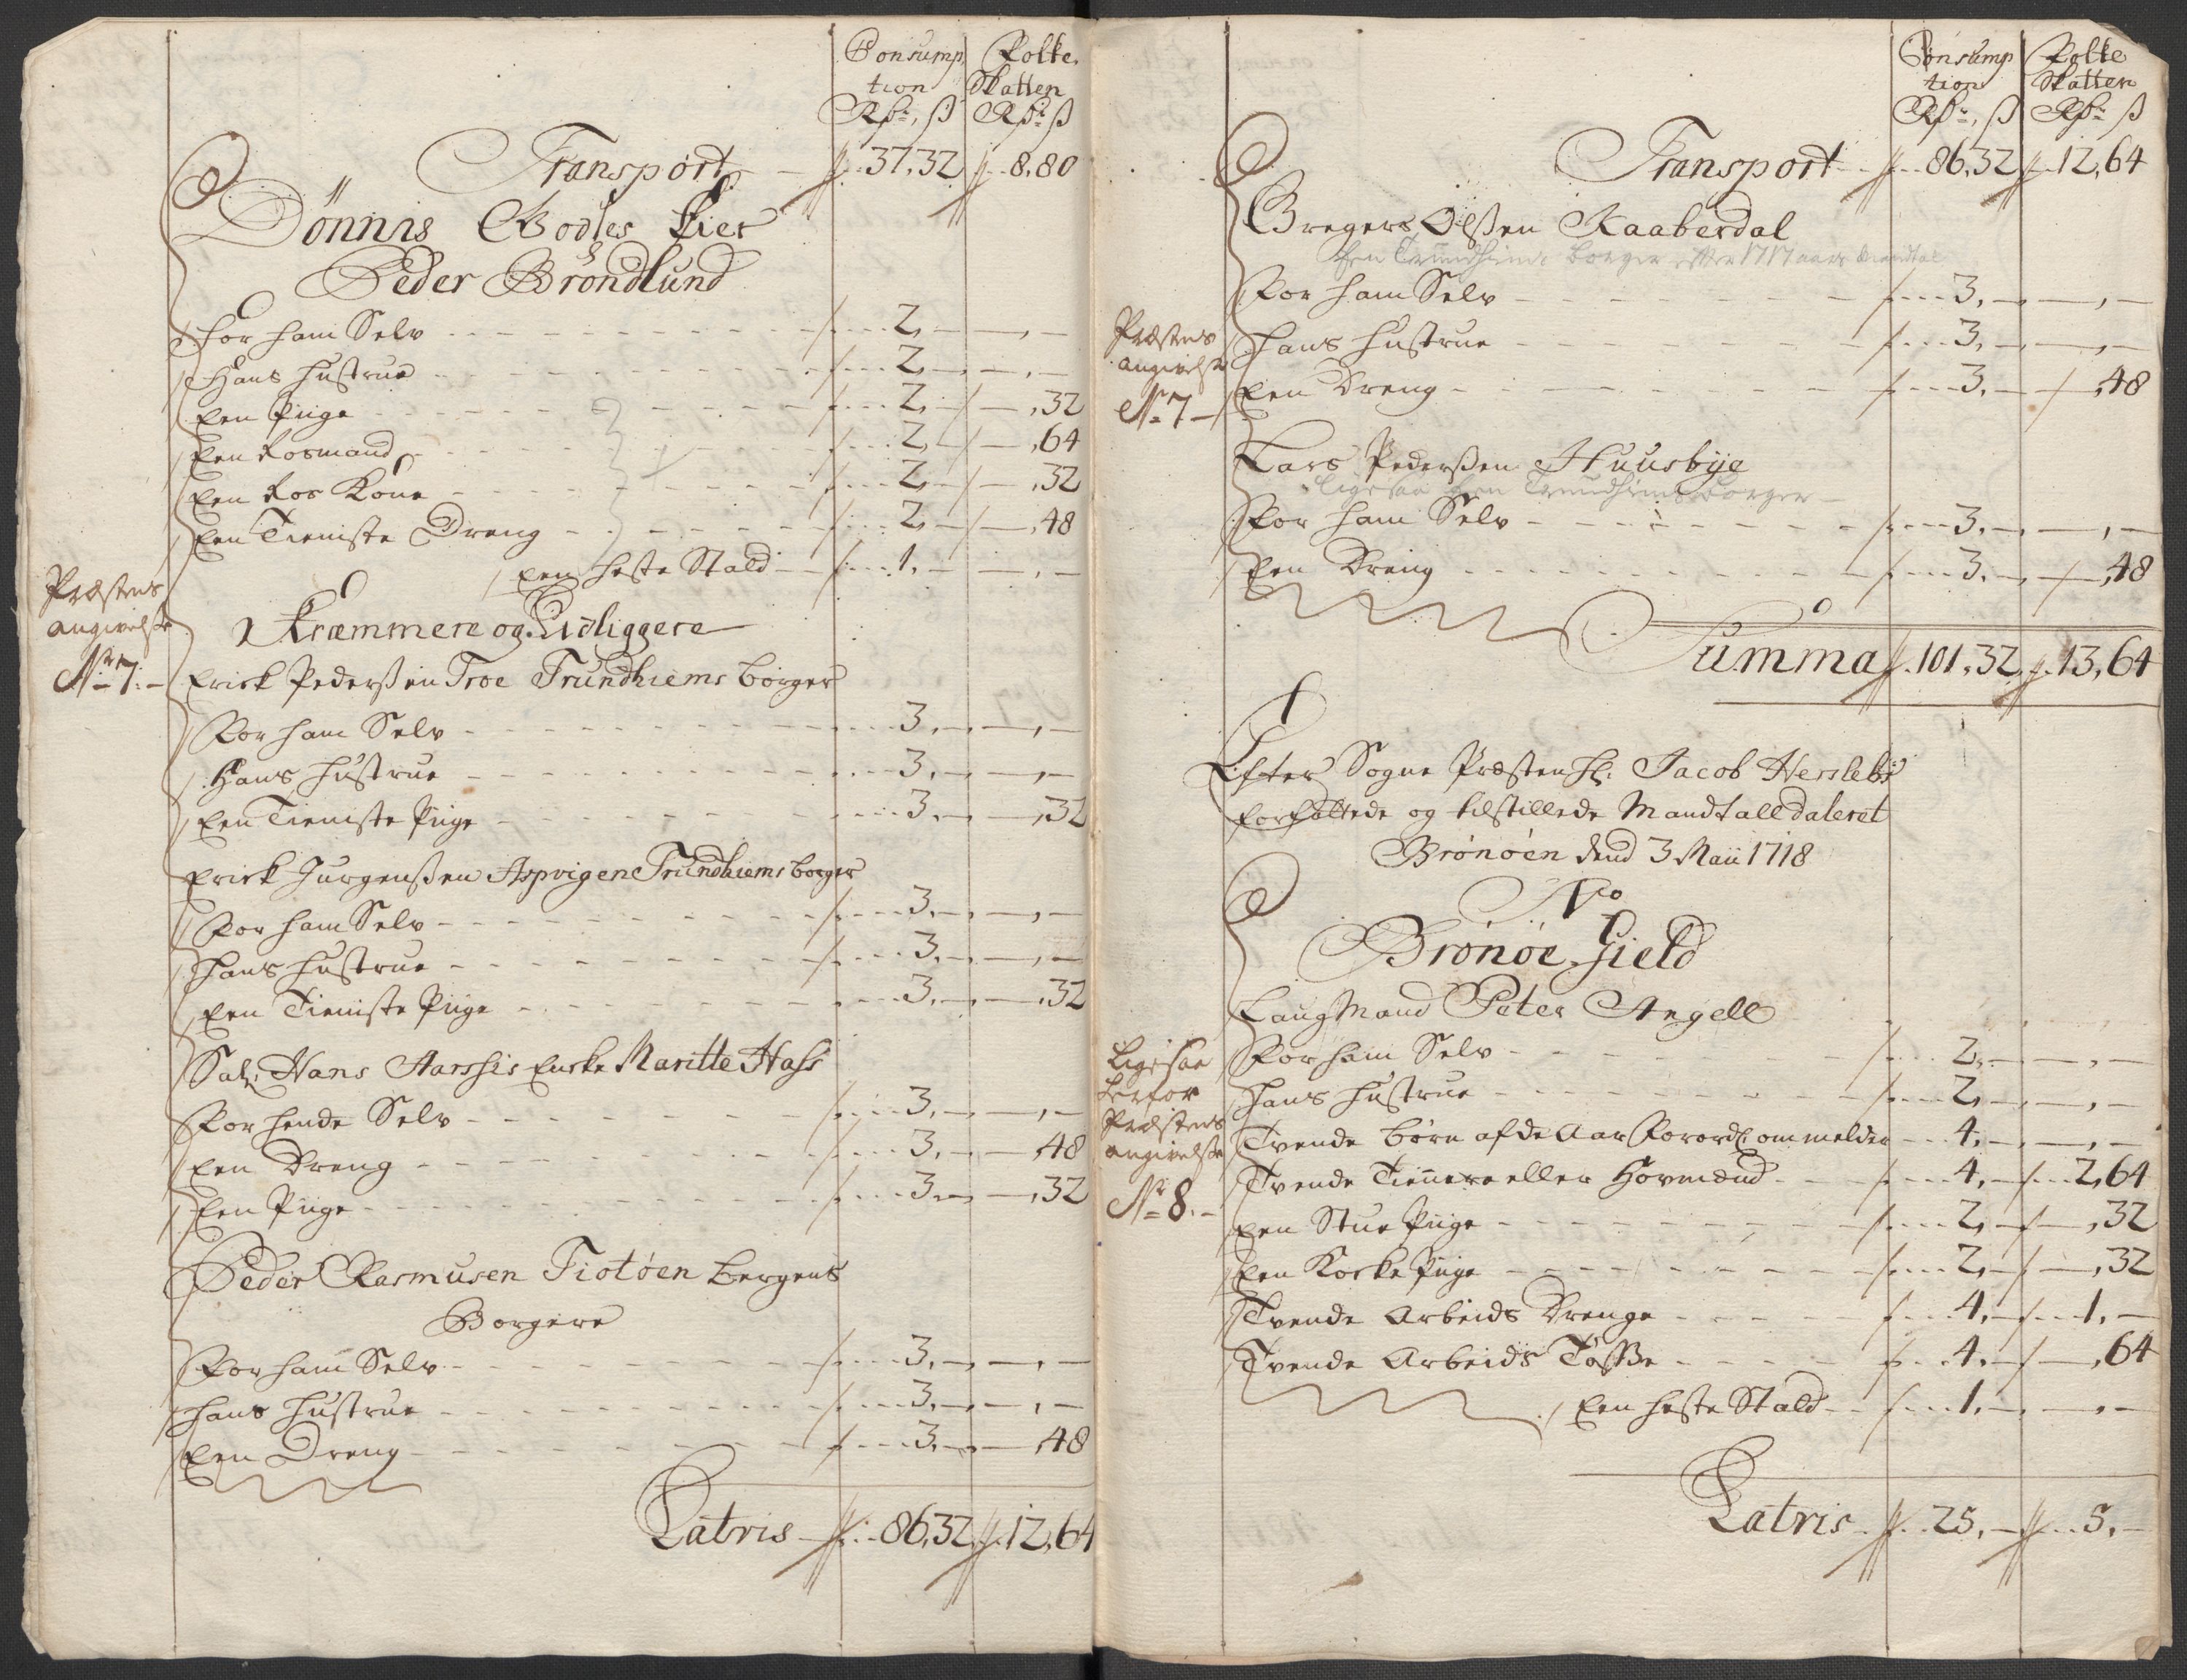 Consump Folke
tion Skatten
Rdr, ß Rdr ß
Transport 37,32 8,80
Dönnis Godtes Eier
Peder Brondlund
for ham Selv 2, — —,—
Hans Hustrue 2, — —,—
Een Piige 2, — —,32
Een Rosmand 2, — —,64
Een Ros Kone 2, — —,32
Een Tieniste Dreng 2, — —,48
Een Heste Stald 1. — —,—
Præstens
angivelse
Nr 7.
Kræmmere og Udliggere
Erick Pederßen Troe Trundhiems borger
For ham Selv 3, — —,—
Hans Hustrue 3, — —,—
Een Tieniste Piige 3, — —,32
Erick Jurgenßen Aspvigen Trundhiems borger
For ham Selv 3, — —,—
Hans Hustrue 3, — —,—
Een Tieniste Piige 3, — —,32
Sal: Hans Harssis Enke Maritte Hass
For hende Selv 3, — —,—
Een Dreng 3, — —,48
Een Piige 3, — —,32
Peder Rasmusen Tiotøen Bergens
Borgere
For ham Selv 3, — —,—
Hans Hustrue 3, — —,—
Een Dreng 3, — —,48
Latris 86,32 12,64
Consump Folke
tion Skatten
Rdr, ß Rdr ß
Transport 86,32 12,64
Bregers Olßen Kaaberdal
Een Trundhiems borger efter 1717 aars Mandtal
For ham Selv 3, — —,—
Hans Hustrue 3, — —,—
Een Dreng 3, — —,48
Præstens
angivelse
Nr 7
Lars Pederßen Huusbye
Ligesaa Een Trundhiems borger
For ham Selv 3, — —,—
Een Dreng 3, — —,48
Summa 101,32 13,64
Efter Sogne Præsten Hr: Jacob Herslebs
forfattede og tilstillede Mandtall dateret
Brønøen dend 3 Maii 1718
No
Brønøe Gield
LaugMand Peter Angell
For ham Selv 2, — —,—
Hans Hustrue 2, — —,—
Tvende børn af de Aar Forord: ommelder 4, — —,—
Tvende Tiennere eller Hovmænd 4, — 2,64
Een Stue Piige 2, — —,32
Een Kocke Piige 2, — —,32
Tvende Arbeids Drenge 4, — 1, —
Tvende Arbeids Tøsße 4, — —,64
Een Heste Stald 1, — —,—
Ligesaa
herfor
Præstens
angivelse
Nr 8.
Latris 25, — 5, —